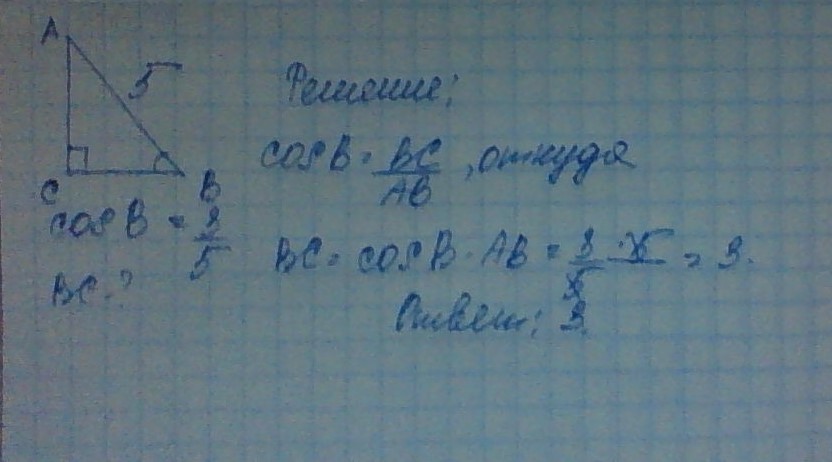 A
5
C
B
cos B = 3/5
BC-?
Решение:
cos B = BC/AB, откуда
BC = cos B · AB = 3 · 5/5 = 3.
Ответ: 3.